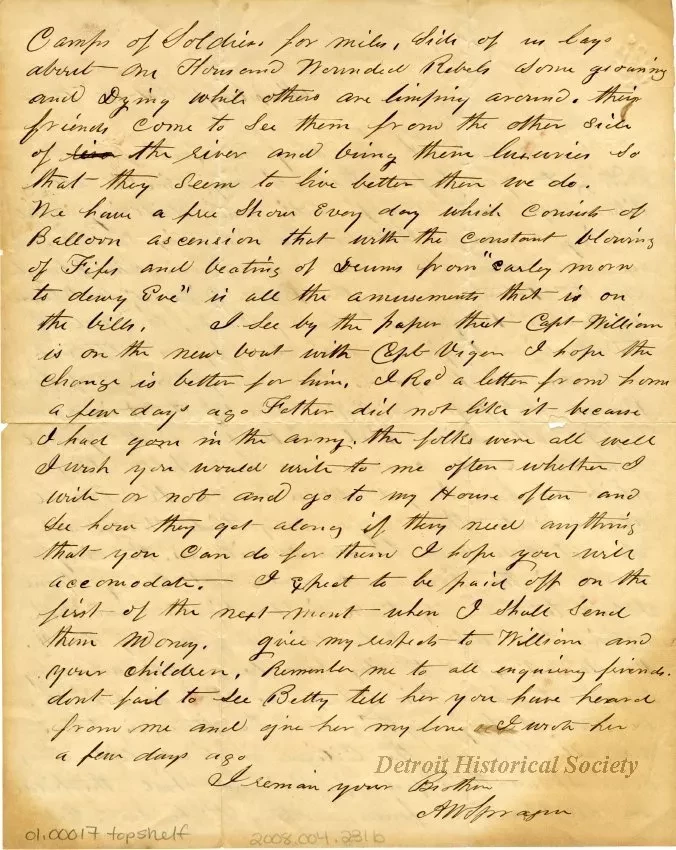 Camps of Soldiers for miles, Side of us lays
about one Thousand Wounded Rebels some groaning
and Dying while others are limping around. their
friends come to See them from the other Side
of the river and bring them luxuries so
that they Seem to live better then we do.
We have a free Show Every day which Consists of
Balloon ascension that with the constant blowing
of Fifs and beating of Drums from "earley morn
to dewy Eve" is all the amusements that is on
the bills. I See by the paper that Capt William
is on the new boat with Capt Viger I hope the
change is better for him. I Recd a letter from home
a few days ago Father did not like it because
I had gone in the army. the folks were all well
I wish you would write to me often whether I
write or not and go to my House often and
See how they get along if they need anything
that you Can do for them I hope you will
accomodate. I Expect to be paid off on the
first of the next mont when I shall Send
them Money. give my respects to William and
your children. Remember me to all enquiring friends.
dont fail to See Betty tell her you have heard
from me and give her my love I wrote her
a few days ago
I remain your Brother
AW Sprague
Detroit Historical Society
01.00017 topshelf
2008.004.281b